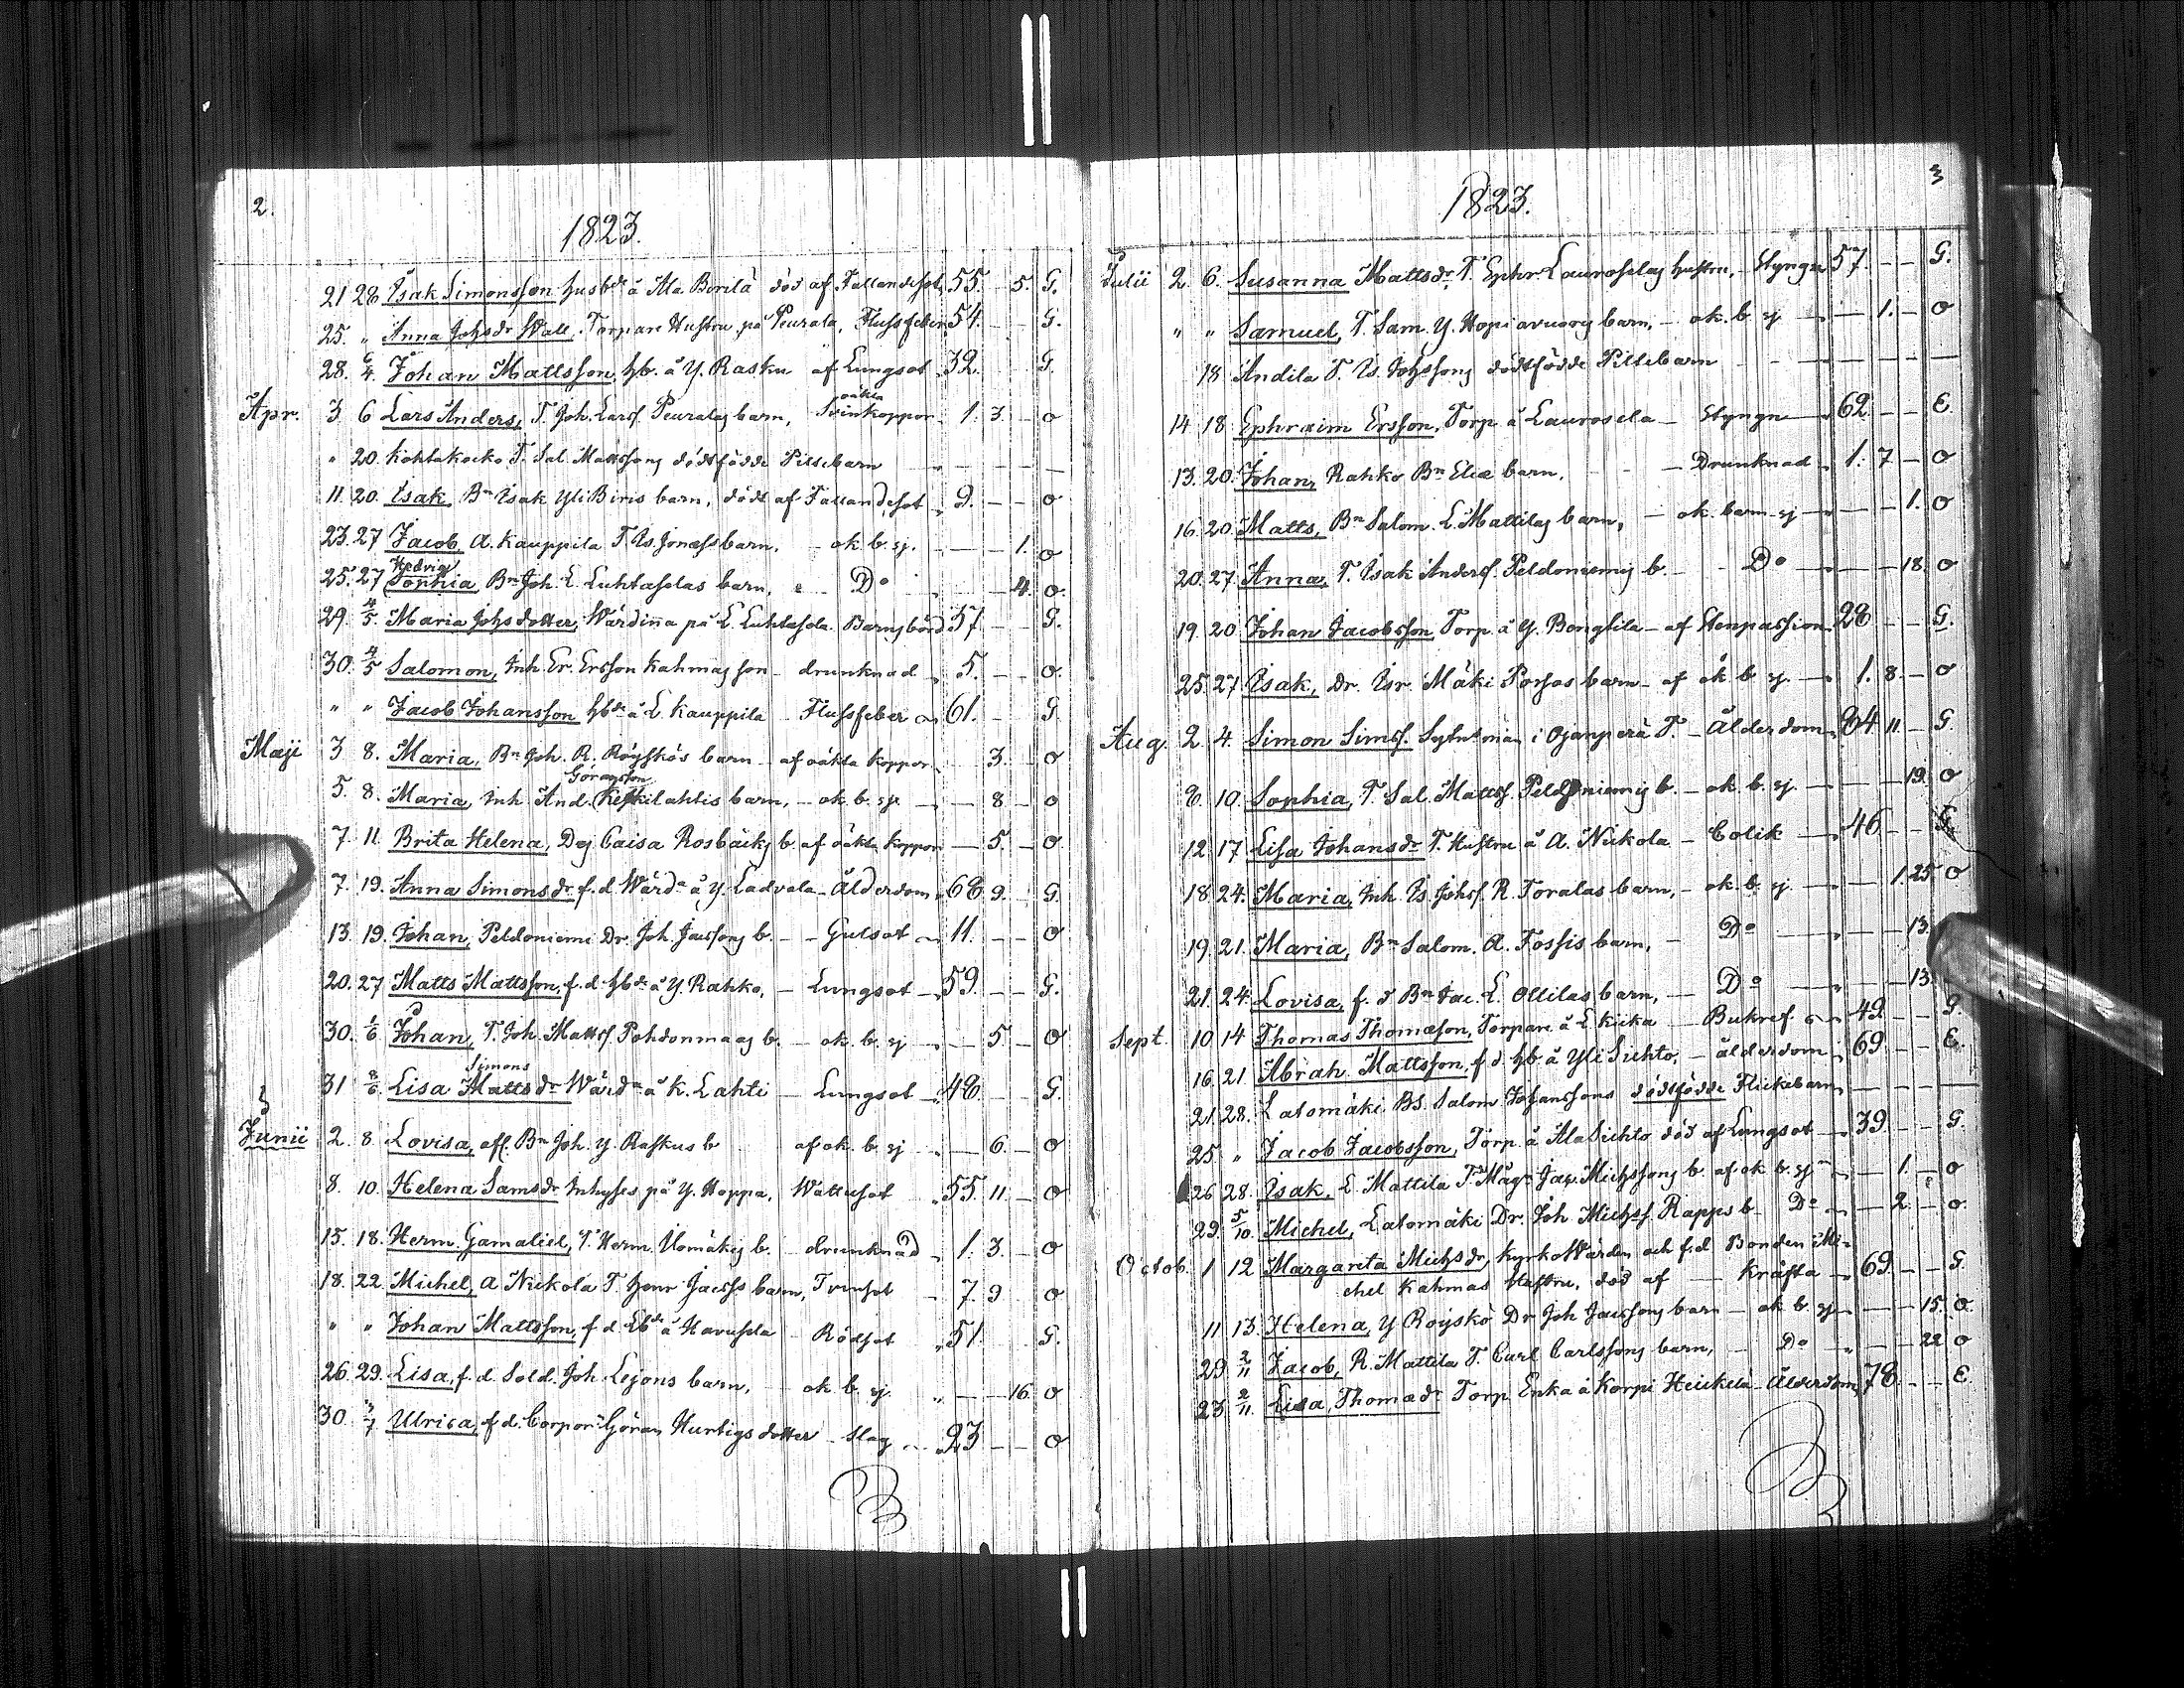 2.
1823.
21 28 Isak Simonsson husbde å Ala Birilä död af Fallandesot, 55. - 5. G.
25. " Anna Johsdr Wall, Torpare Hustru på Peurala, Flussfeber 54. G.
28. 6/4. Johan Mattsson, hb. å Y. Rasku af Lungsot 32. G.
Apr. 3 6 Lars Anders, T. Joh. Larss. Peuralas barn, oäkta Svinkoppor 1. 3. - o
" 20. Kohtakoski T. Sal. Mattssons dödfödde Piltebarn - - -
11. 20. Isak, Bn Isak Yli Biris barn, dödt af Fallandesot 9. - - o
23. 27 Jacob, A. Kauppila T. Is. Jonæss barn, - ok. b. sj. - - 1. o
25. 27 Hedvig Sophia, Bn Joh. L. Luhtaselas barn, Do - - 4. o.
29. 4/5. Maria Johsdotter, Wärdinna på L. Luhtasela Barnsbörd 37 - - G.
30. 4/5 Salomon, Inh. Er. Ersson Kahmas son - drunknad 5. - - o.
" " Jacob Johansson hbde å L. Kauppila - Flussfeber 61. - G
Maji 3 8. Maria, Bn Joh. R. Röyskös barn - af oäkta koppor - 3. - o
5. 8. Maria, Inh. And. Göransson Keskilahtis barn, - ok. b. sj. - 8 - o
7. 11. Brita Helena, Dej Caisa Rosbäcks b. af oäkta koppor - 5. - o
7. 19. Anna Simonsdr. f. d. Wärda å Y. Ladvala - Ålderdom 68 9. - G.
13. 19. Johan, Peldoniemi Dr. Joh. Jacssons b. - - Gulsot 11. - - o
20. 27 Matts Mattsson, f. d. hbde å Y. Rahko, - Lungsot 59. - - G.
30. 1/6 Johan, T. Joh. Mattss Pohdonmaas b. - ok. b. sj - 5 - o
31 8/6. Lisa Simons Mattsdr Wärda å K. Lahti - Lungsot 48. G.
Junii 2. 8. Lovisa, afl. Bn Joh. Y. Raskus b af ok. b. sj - 6. - o
8. 10. Helena Samsdr Inhyses på Y. Hoppa, Wattusot 55. 11. - o
15. 18. Herm. Gamaliel, T. Herm. Uomäkis b. - drunknad 1. 3. - o
18. 22. Michel, A Nickola T. Henr Jacss barn, Tvinsot 7. 9 o
" " Johan Mattsson, f. d. Lbde å Havusela Rödsot 51. G.
26. 29. Lisa, f. d. Sold. Joh. Lejons barn, - ok. b. sj. - - 16. o
30. Ulrica, f. d. Corpor. Göran Hurtigs dotter - slag 23 - - o
3
1823.
Julii 2. 6. Susanna Mattsdr, T. Ephr. Lauroselas hustru, - Styngn 57. - - G.
" " Samuel, T. Sam. Y. Hopiavuoris barn, - ok. b. sj - 1. - o
18 Andila T. Is. Johssons dödfödde Piltebarn - - -
14 18. Ephraim Ersson, Torp. å Laurosela - Styngn 62 - - E.
13. 20. Johan, Rahko Bn Eliæ barn. - - Drunknad 1. 7 - o
16. 20 Matts, Bn Salom. L. Mattilas barn, - ok. barn sj - - 1. o
20. 27. Anna, T. Isak Anderss. Peldoniemis b. - Do - - 18. o
19. 20 Johan Jacobsson Torp. å Y. Bonghila - af Stenpassion 28 - - G.
25. 27 Isak, Dr. Isr. Mäki Porsas barn - af ok b sj 1. 8. - o
Aug. 2. 4. Simon Simss. Sytnsman i Ojanperä T. - Ålderdom 84 11 - G.
8. 10. Sophia, T. Sal. Mattss. Peldoniemis b. - ok. b. sj - - 19. o
12. 17. Lisa Johansdr T. Hustru å A. Nickola - Colik 46 - - G.
18 24. Maria, Inh. Is. Johss. R. Toralas barn, - ok. b. sj. - 1. 25. o
19. 21. Maria, Bn Salom. A. Fossis barn, - Do - - 13.
21. 24. Lovisa, f. d Bn Jac. L. Ollilas barn, - Do - - 13.
Sept. 10 14 Thomas Thomæson, Torpare å L Kiika - Bukref 49. - - G.
16. 21 Abrah. Mattsson, f. d. hb. å Yli Sichto, - ålderdom 69 - - E.
21. 28. Latomäki Bs. Salom Johanssons dödfödde Flickebarn - - -
25. " Jacob Jacobsson, Torp. å Ala Sichto död af Lungsot 39. - - G.
26 28. Isak, L. Mattila T. Mågn Jac. Michssons b. af ok b. sj - 1. - o
29. 5/10. Michel, Latomäki Dr. Joh. Michss Rapps b. Do - 2. - o.
Octob. 1 12 Margareta Michsdr, kyrkoWärden och f.d. Bonden Mi-
chel Kahmas Hustru, död af - Kräfta 69. - - G
11. 13. Helena, Y Royskö Dr Joh Jacssons barn - ok b. sj - - 15. o.
29 2/11 Jacob, R. Mattila T. Carl Carlssons barn, - Do - - 22 o
23 2/11. Lisa, Thomædr Torp. Enka å Korpi Heickilä - Ålderdom 78. - - E.